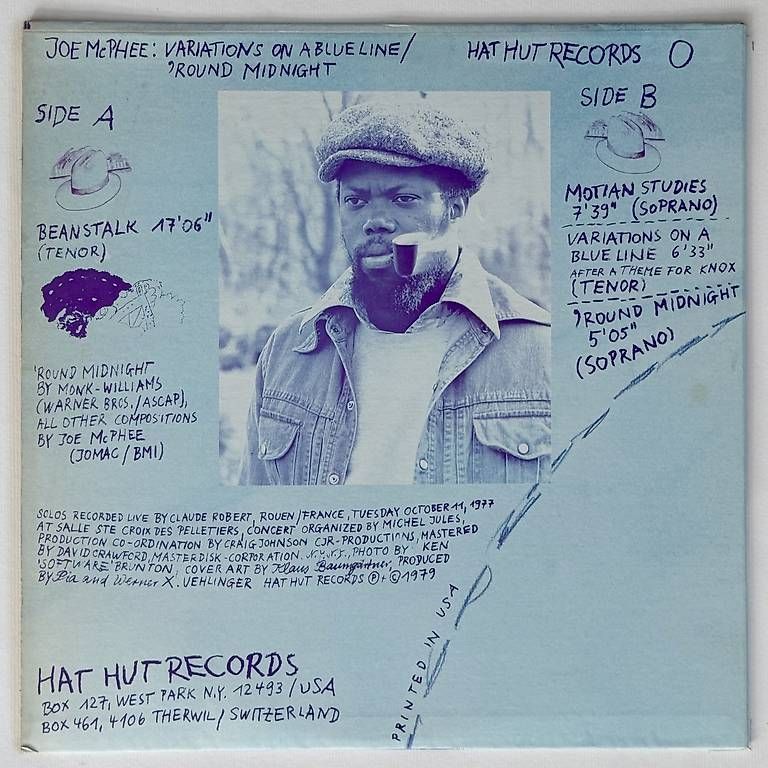 JOE McPHEE: VARIATIONS ON A BLUE LINE/
'ROUND MIDNIGHT
HAT HUT RECORDS O
SIDE A
BEANSTALK 17'06"
(TENOR)
'ROUND MIDNIGHT
BY MONK-WILLIAMS
(WARNER BROS./ASCAP),
ALL OTHER COMPOSITIONS
BY JOE McPHEE
(JOMAC/BMI)
SIDE B
MOTIAN STUDIES
7'39" (SOPRANO)
VARIATIONS ON A
BLUE LINE 6'33"
AFTER A THEME FOR KNOX
(TENOR)
'ROUND MIDNIGHT
5'05"
(SOPRANO)
SOLOS RECORDED LIVE BY CLAUDE ROBERT, ROUEN/FRANCE, TUESDAY OCTOBER 11, 1977
AT SALLE STE CROIX DES PELLETIERS, CONCERT ORGANIZED BY MICHEL JULES,
PRODUCTION CO-ORDINATION BY CRAIG JOHNSON CJR-PRODUCTIONS, MASTERED
BY DAVID CRAWFORD, MASTERDISK-CORPORATION. N.Y.N.Y., PHOTO BY KEN
'SOFTWARE' BRUNTON, COVER ART BY Klaus Baumgärtner, PRODUCED
BY Pia and Werner X. UEHLINGER HAT HUT RECORDS Ⓟ+© 1979
HAT HUT RECORDS
BOX 127, WEST PARK N.Y. 12493/USA
BOX 461, 4106 THERWIL/SWITZERLAND
PRINTED IN USA